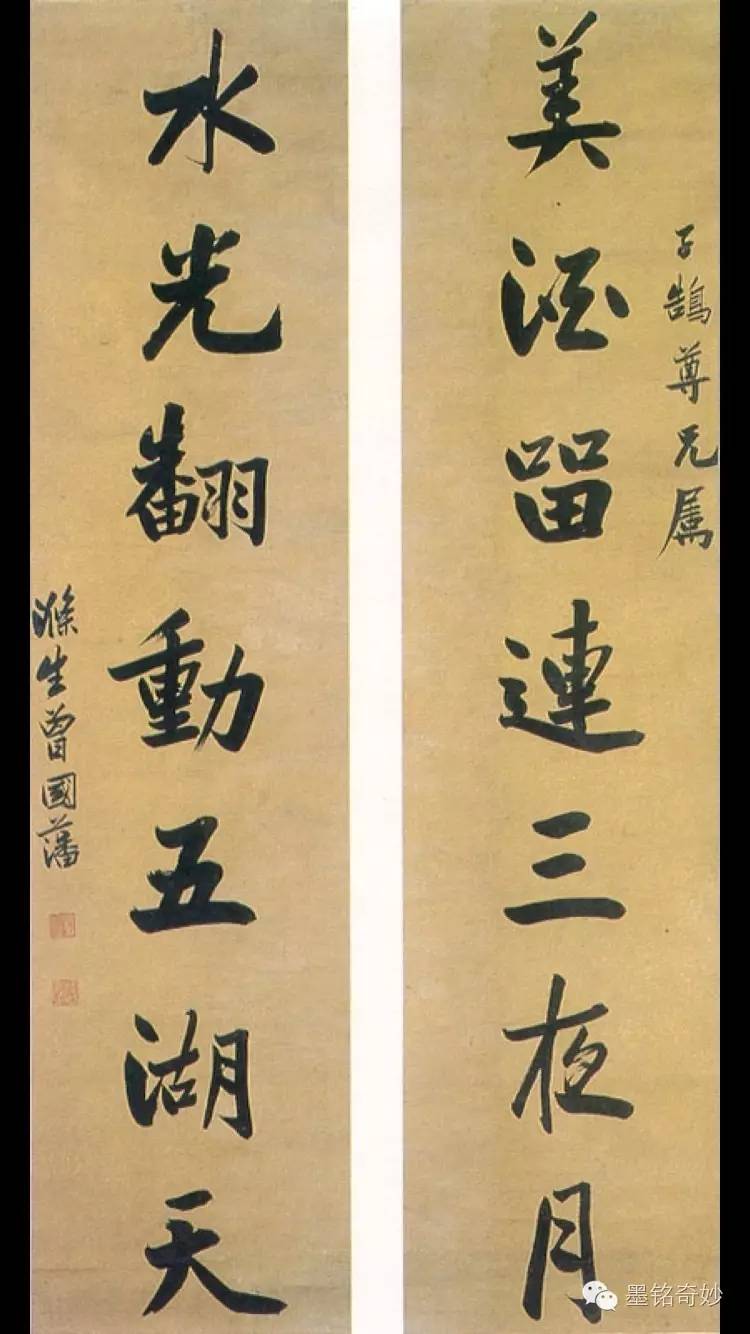 子鵠尊兄属
美酒留連三夜月
水光翻動五湖天
滌生曾國藩
墨铭奇妙